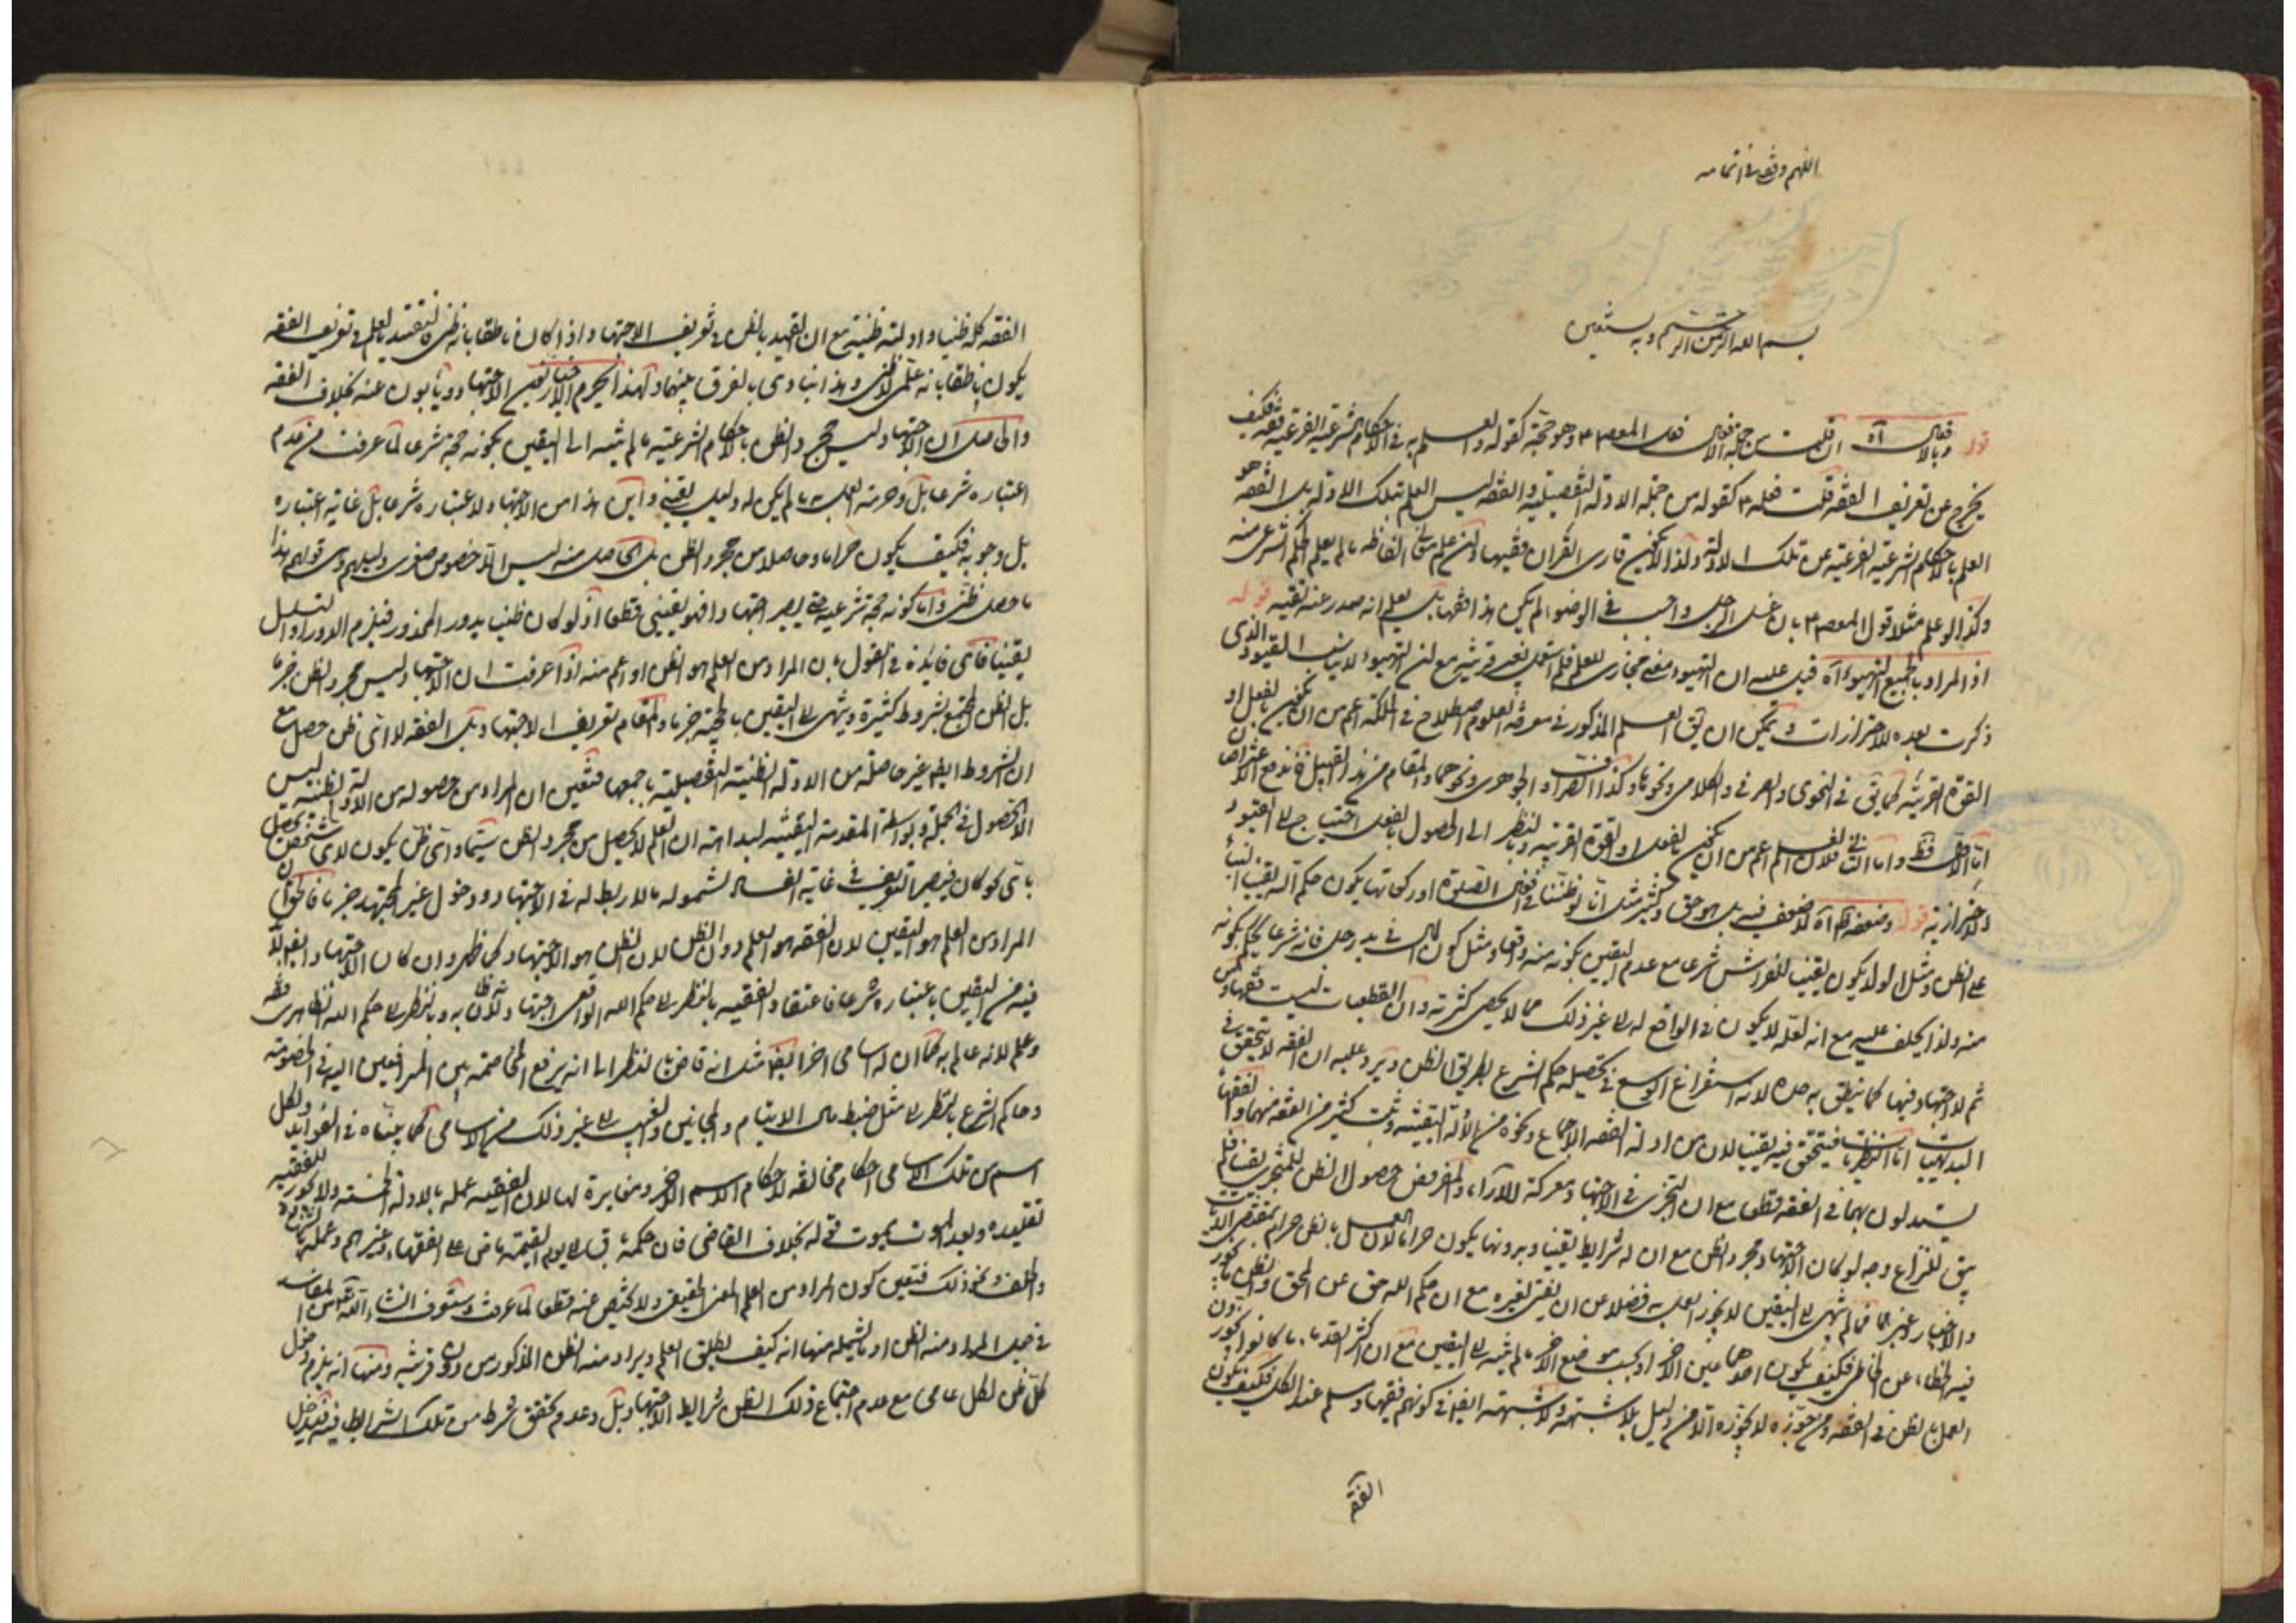 اللهم وفقنى فى اتمامه
بسم الله الرحمن الرحيم وبه نستعين
قوله وبالافعال آه ان قلت من جملة الافعال فعل المعصوم ع وهو حجة كقوله والعلم به فى الاحكام الشرعية الفرعية فقه فكيف
يخرج عن تعريف الفقه قلت فعله ع كقوله من جملة الادلة التفصيلية والفقه ليس العلم بتلك الادلة بل الفقه هو
العلم بالاحكام الشرعية الفرعية عن تلك الادلة ولذا لا يكون قارى القران فقيها وان علم معانى الفاظه ما لم يعلم الحكم الشرعى منه
وكذا لو علم مثلا قول المعصوم ع بان غسل الرجل واجب فى الوضوء لم يكن هذا فقها بل يعلم انه صدر عنه تقية قوله
اذ المراد بالجميع التهيوء آه قيل عليه ان التهيوء معنى مجازى للعلم فلم استعمل بغير قرينة مع ان التهيوء لا يناسب القيود الذى
ذكرت بعده للاحترازات ويمكن ان يق العلم المذكور فى معرفة العلوم اصطلاح فى الملكة اعم من ان يكون بالفعل او
القوة القريبة كما يق فى النحوى والصرفى والكلامى ونحوها وكذا الصراف والجوهرى ونحوهما والمقام من هذا القبيل فاندفع الاعتراض
الاول فقط واما الثانى فلان العلم اعم من ان يكون بالفعل او القوة القريبة وبالنظر الى الحصول بالفعل احتيج الى القيود
الاحترازية قوله وضعفه ظ آه لا ضعف فيه بل هو حق وكثير مثل انا لو ظننا فى افعال الصلوة او ركعاتها يكون حكم الله يقينا البناء
على الظن ومثل الولد يكون يقينا للفراش شرعا مع عدم اليقين بكونه منه واقعا ومثل كون المال فى يد رجل فانه شرعا يحكم بكونه
منه ولذا يحلف عليه مع انه لعله لا يكون فى الواقع له الى غير ذلك مما لا يحصى كثرته وان القطعيات ليست فقها
ثم لا اجتهاد فيها كما ينطق به حده لانه استفراغ الوسع فى تحصيله حكم الشرع بطريق الظن ويرد عليه ان الفقه لا يتحقق فى
البديهيات اما النظريات فيتحقق فيه يقينا لان من ادلة الفقه الاجماع ونحوه من الادلة اليقينية وثبت كثير من الفقه منهما والفقهاء
يستدلون بهما فى الفقه قطعا مع ان التجزى فى الاجتهاد معركة للآراء والمفروض حصول الظن للمتجزى يقينا فلم
يبق للنزاع وجه لو كان الاجتهاد مجرد الظن مع ان له شرايط يقينا وبدونها يكون حراما لان العمل بالظن حرام بمقتضى الايات
والاخبار وغيرهما فما لم ينتهى الى اليقين لا يجوز العمل به فضلا عن ان يفتى لغيره مع ان حكم الله حق عن المحق والظن يجوز
فيه الخطاء عن الخاطى فكيف يكون احدهما عين الاخر او يجب موضع الاخر ما لم ينته الى اليقين مع ان اكثر القدماء ما كانوا يجوزون
العمل بالظن فى الفقه ومن جوزه لا يجوزه الا من دليل بلا شبهة ولا شبهة ايضا فى كونهم فقيها وسلم عند الكل فكيف يكون
الفقه
الفقه كله ظنيا وادلته ظنية مع ان القيد بالظن فى تعريف الاجتهاد اذا كان ناطقا بانه ظنى فالتقييد بالعلم فى تعريف الفقه
يكون ناطقا بانه علمى لا ظنى وهذا ينادى بالفرق بينهما ولهذا يحرم الاخباريين الاجتهاد ويأبون عنه بخلاف الفقه
والحاصل ان الاجتهاد ليس مجرد الظن بالاحكام الشرعية ما لم ينته الى اليقين بكونه حجة شرعا لما عرفت من عدم
اعتباره شرعا بل وحرمة العمل به ما لم يكن له دليل يقينى واين هذا من الاجتهاد ولاعتباره شرعا بل غاية اعتباره
بل وجوبه فكيف يكون حراما وحاصلا من مجرد الظن بل الحاصل منه ليس الا خصوص صغرى دليلهم وهى قولهم هذا
ما حصل ظنى واما كونه حجة شرعية حتى يصير اجتهادا فهو يقينى قطعا اذ لو كان ظنيا يدور المحذور فيلزم الدور او التسلسل
يقينا فاى فايدة فى القول بان المراد من العلم هو الظن او اعم منه اذا عرفت ان الاجتهاد ليس مجرد الظن جزما
بل الظن المجتمع بشروط كثيرة وينتهى الى اليقين بالحجية جزما والمقام تعريف الاجتهاد بل الفقه لا اى ظن حصل مع
ان الشروط ايضا غير حاصلة من الادلة الظنية التفصيلية باجمعها فتعين ان المراد من حصوله من الادلة الظنية ليس
الا الحصول فى الجملة وبواسطة المقدمة اليقينية لبداهة ان العلم لا يحصل من مجرد الظن سيما واى ظن يكون لاى شخص يحصل
باى نحو كان فيصير التعريف فى غاية الفساد لشموله ما لا ربط له فى الاجتهاد ودخول غير المجتهد جزما فالحق ان
المراد من العلم هو اليقين لان الفقه هو العلم دون الظن لان الظن هو الاجتهاد كما ظهر وان كان الاجتهاد ايضا لابد
فيه من اليقين باعتباره شرعا فاعتقاد الفقيه بالنظر الى حكم الله الواقعى اجتهاد وبالنظر الى حكم الله الظاهرى فقه
وعلم لانه عالم به كما ان له اسامى اخر ايضا مثل انه قاض بالنظر الى انه يرفع المخاصمة بين المترافعين اليه فى الخصومة
وحاكم الشرع بالنظر الى مثل ضبط مال الايتام والمجانين والغيب الى غير ذلك من الاسامى كما بيناه فى الفوايد ولكل
اسم من تلك الاسامى احكام مخالفة لاحكام الاسم الاخر ومغايرة لها لان الفقيه عمله بالادلة الخمسة ولا يجوز للفقيه
تقليده وبعد الموت يموت قوله بخلاف القاضى فان حكمه باق الى يوم القيمة ماض على الفقهاء وغيرهم وعمله بالشهادة
والحلف ونحو ذلك فتعين كون المراد من العلم المعنى الحقيقى ولا محيص عنه قطعا لما عرفت وستعرف انشاء الله تعالى من المفاسد
فى جعل المراد منه الظن او ما يشمله منها انه كيف يطلق العلم ويراد منه الظن المذكور من دون قرينة ومنها انه يلزم دخول
كل ظن لكل عامى مع عدم اجتماع ذلك الظن شرايط الاجتهاد بل وعدم تحقق شرط من تلك الشرايط فيه فيدخل